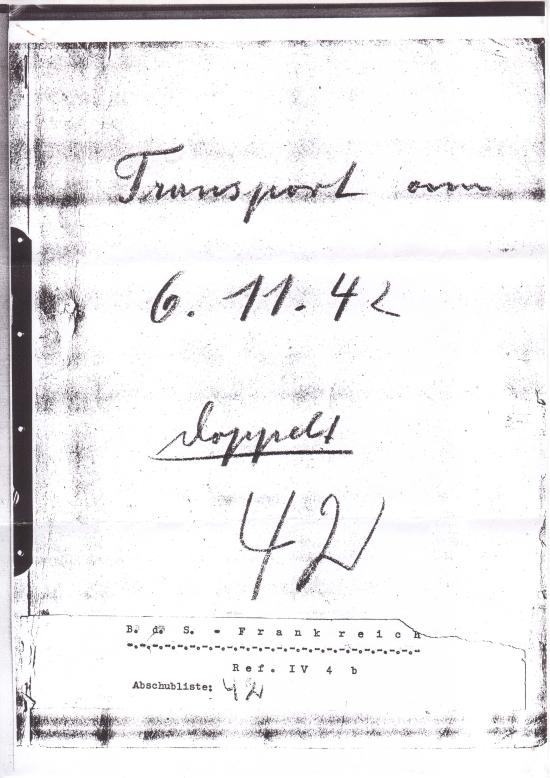 Transport am
6. 11. 42
doppelt
42
B. d. S. - F r a n k r e i c h
-.-.-.-.-.-.-.-.-.-.-.-.-.-.-.-.-.-.-.-
R e f . IV 4 b
Abschubliste: 42